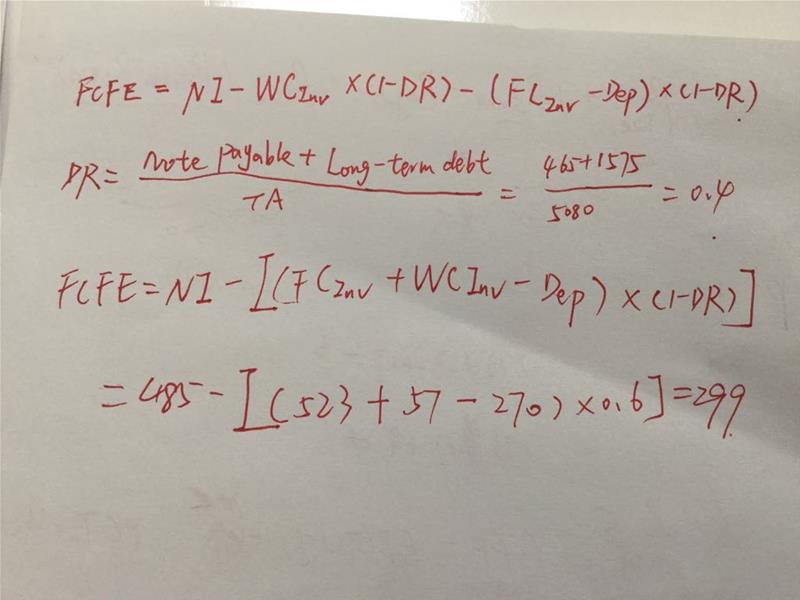 FCFE = NI - WCInv × (1-DR) - (FCInv - Dep) × (1-DR)
DR = (Note payable + Long-term debt) / TA = (465+1575) / 5080 = 0.4
FCFE = NI - [(FCInv + WCInv - Dep) × (1-DR)]
= 485 - [(523 + 57 - 270) × 0.6] = 299